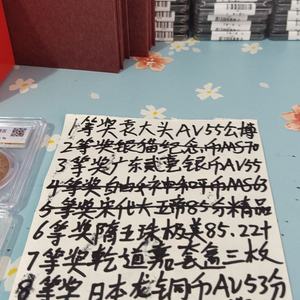 1等奖袁大头AV55公博
2等奖银猫纪念币MS70
3等奖广东贰毫银币AV55
4等奖自由行中和平币MS63
5等奖宋代大五帝85分精品
6等奖隋五珠极美85.22+
7等奖乾道嘉套盒三枚
8等奖日本龙铜币AV53分